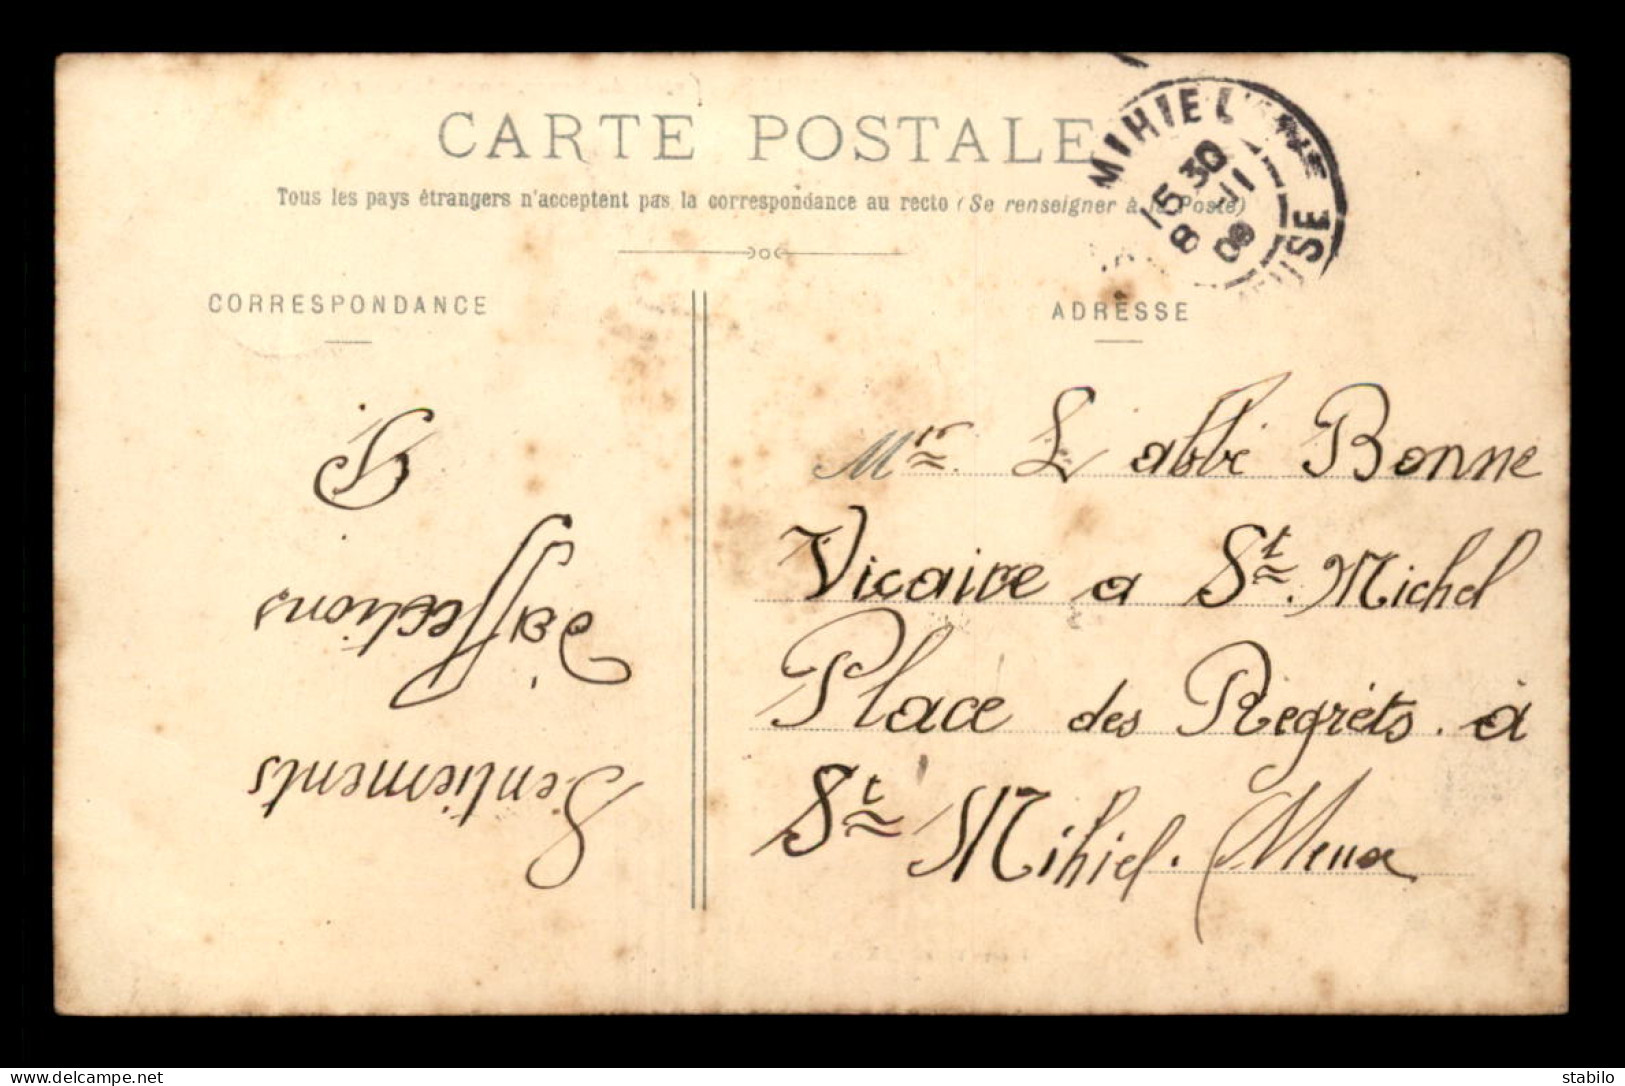 CARTE POSTALE
Tous les pays étrangers n'acceptent pas la correspondance au recto (Se renseigner à la Poste)
MIHIEL
15 30
8 - 11
08
MEUSE
CORRESPONDANCE
ADRESSE
Sentiements
d'affections
Mr L abbé Bonne
Vicaire a St. Michel
Place des Regréts. à
St Mihiel. (Meuse
stabilo